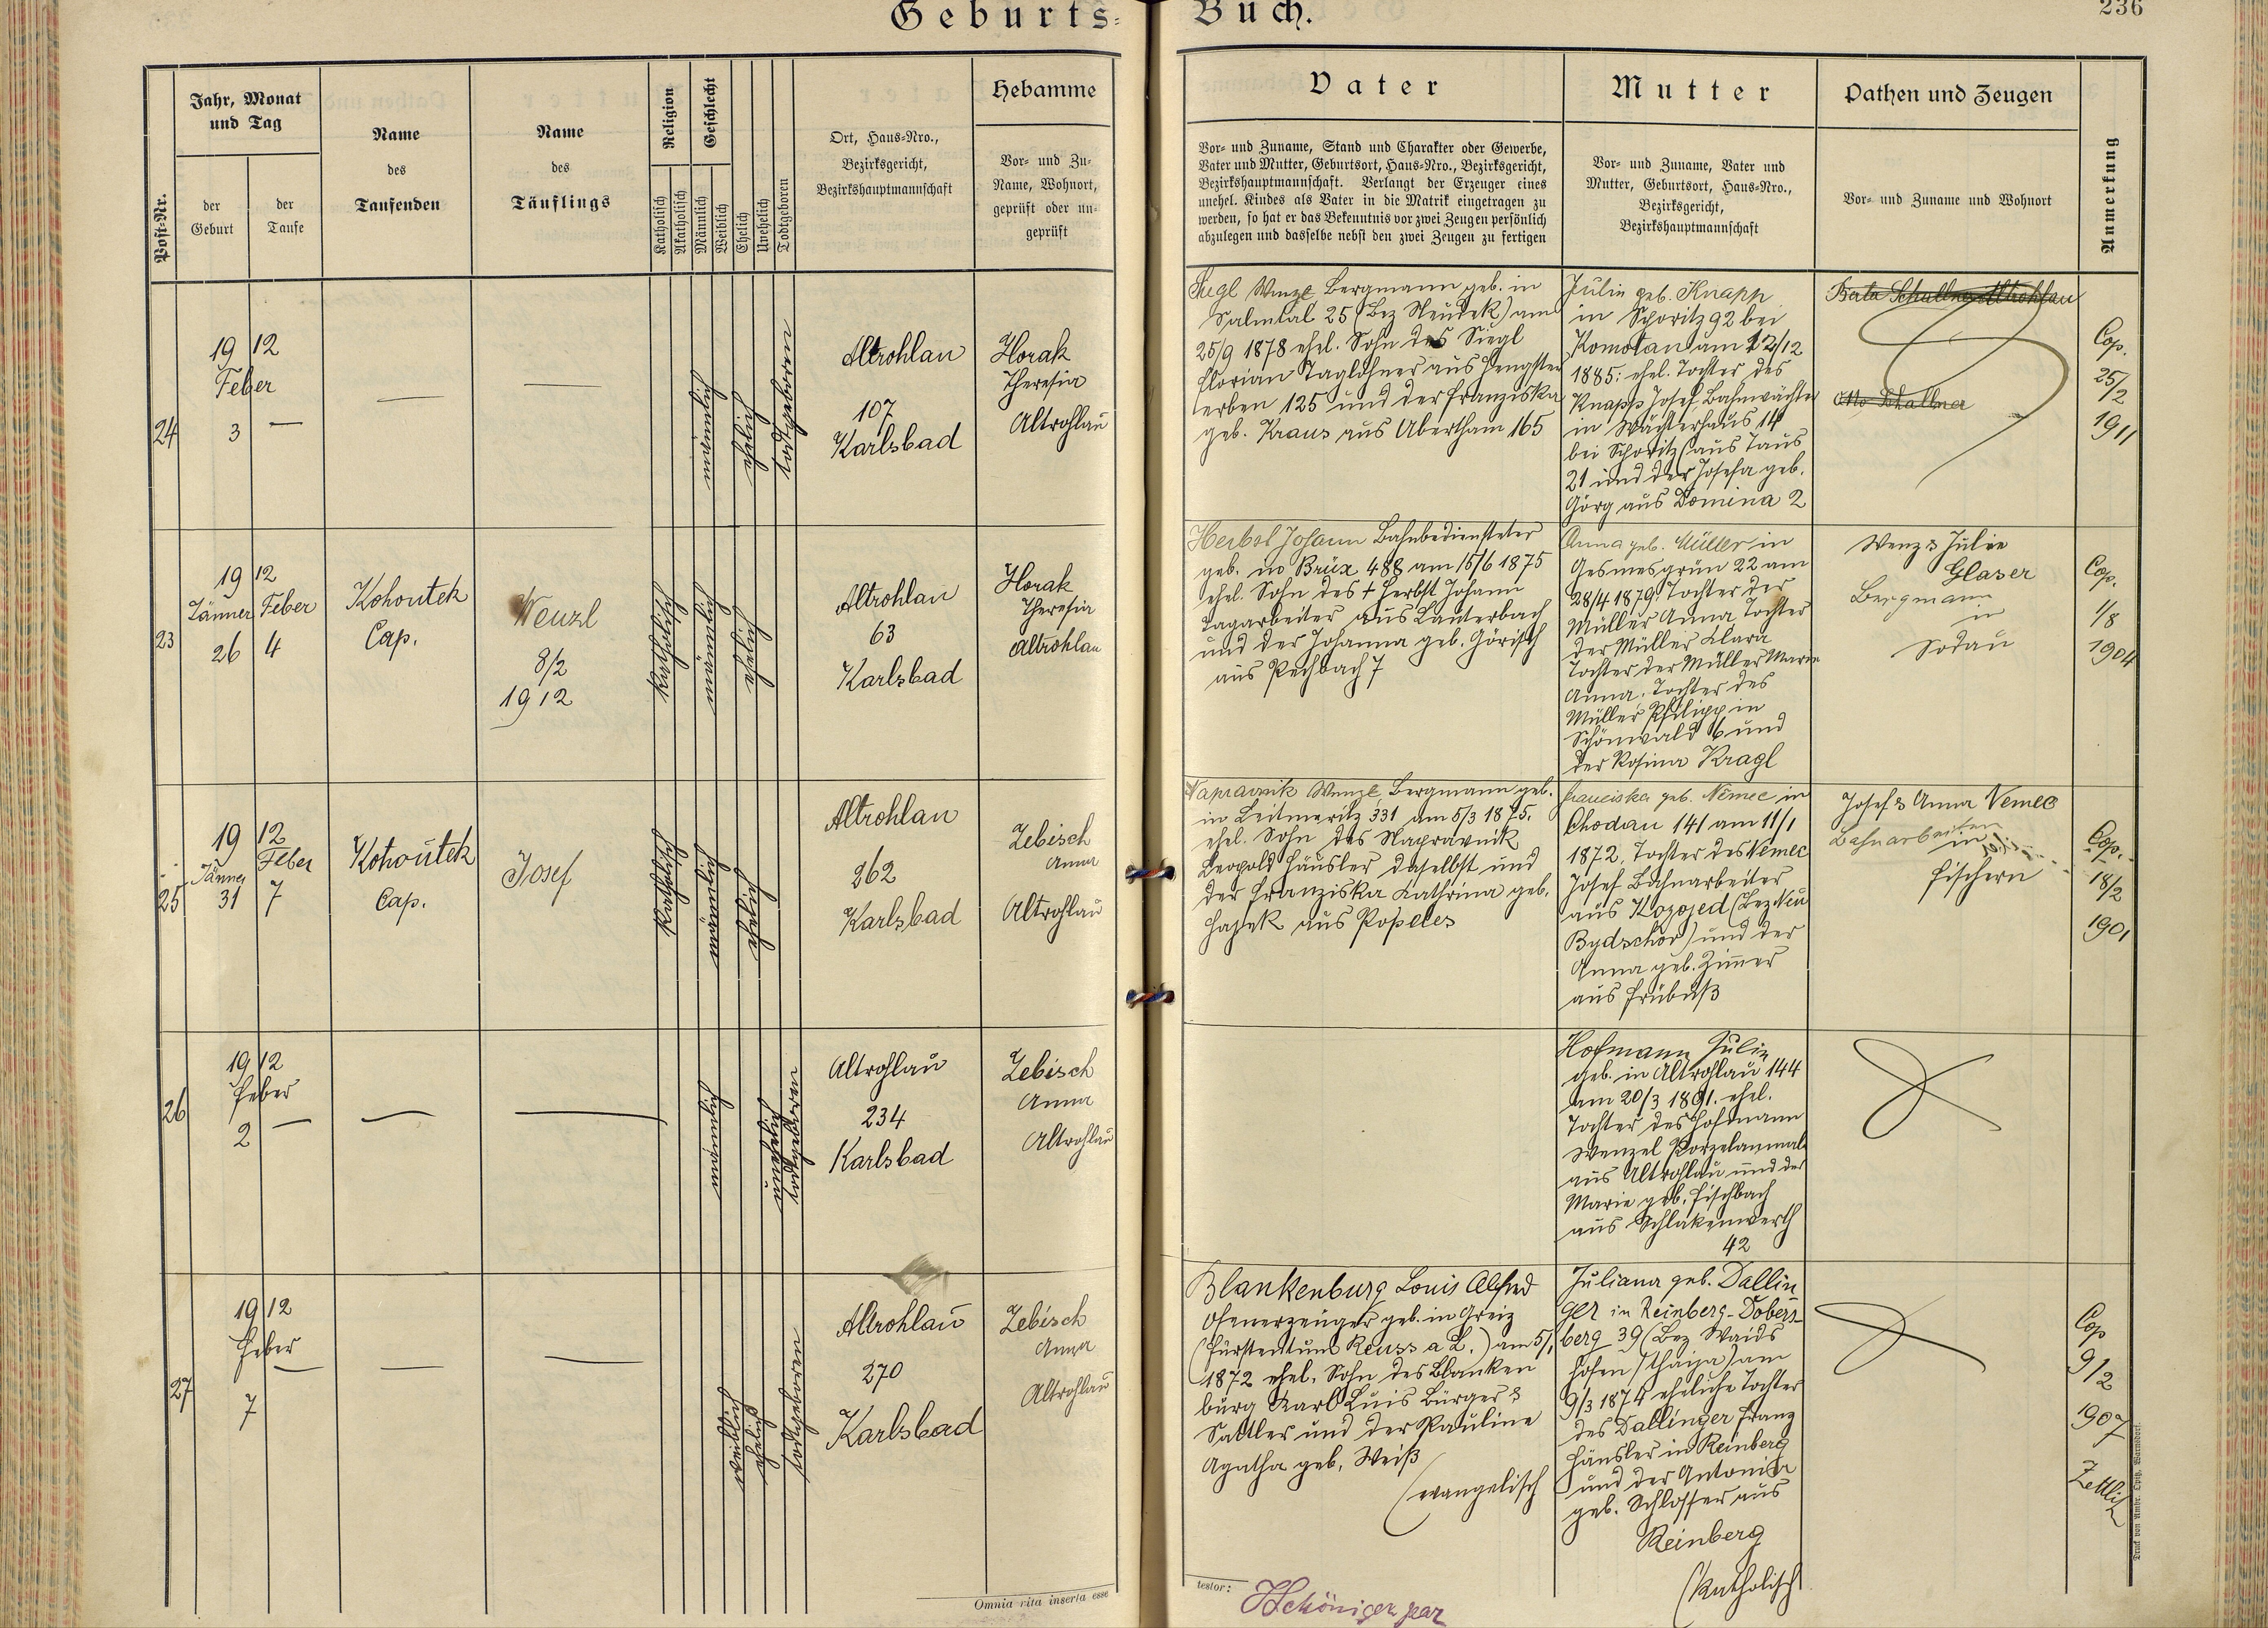 Geburts-Buch.
236
Jahr, Monat
und Tag
der
Geburt
der
Taufe
Post-Nr.
Name
des
Taufenden
Name
des
Täuflings
Religion
Katholisch
Akatholisch
Geschlecht
Männlich
Weiblich
Ehelich
Unehelich
Todtgeboren
Ort, Haus-Nro.,
Bezirksgericht,
Bezirkshauptmannschaft
Hebamme
Vor- und Zu-
Name, Wohnort,
geprüft oder un-
geprüft
Vater
Vor- und Zuname, Stand und Charakter oder Gewerbe,
Vater und Mutter, Geburtsort, Haus-Nro., Bezirksgericht,
Bezirkshauptmannschaft. Verlangt der Erzeuger eines
unehel. Kindes als Vater in die Matrik eingetragen zu
werden, so hat er das Bekenntnis vor zwei Zeugen persönlich
abzulegen und dasselbe nebst den zwei Zeugen zu fertigen
Mutter
Vor- und Zuname, Vater und
Mutter, Geburtsort, Haus-Nro.,
Bezirksgericht,
Bezirkshauptmannschaft
Pathen und Zeugen
Vor- und Zuname und Wohnort
Anmerkung
24
19 12
Feber
3 —
—
—
männlich
ehelich
todtgeboren
Altrohlau
107
Karlsbad
Horak
Theresia
Altrohlau
Wenzl Bergmann geb. in
Salmtal 25 (Bez Neudek) am
25/9 1878 ehel. Sohn des Siegl
Florian Taglöhner aus Hengster
erben 125 und der Franziska
geb. Kraus aus Abertham 165
Julie geb. Knapp
in Sporitz 92 bei
Komotau am 12/12
1885: ehel. Tochter des
Knapp Josef Bahnwächter
in Wächterhaus 14
bei Sporitz (aus Taus
21 und der Josefa geb.
Görg aus Domina 2
Cop.
25/2
1911
23
19 12
Jänner Feber
26 4
Kohoutek
Cap.
Wenzl
8/2
1912
katholisch
männlich
ehelich
Altrohlau
63
Karlsbad
Horak
Theresia
Altrohlau
Herbst Johann Bahnbediensteter
geb. in Brüx 488 am 15/6 1875
ehel. Sohn des † Herbst Johann
Tagarbeiter aus Lauterbach
und der Johanna geb. Görisch
aus Pechbach 7
Anna geb. Müller in
Gesmesgrün 22 am
28/4 1879 Tochter der
Müller Anna Tochter
der Müller Klara
Tochter der Müller Marie
Anna, Tochter des
Müller Philipp in
Schönwald 6 und
der Rosina Kragl
Wenz & Julie
Glaser
Bergmann
in
Sodau
Cop.
1/8
1904
25
19 12
Jänner Feber
31 7
Kohoutek
Cap.
Josef
katholisch
männlich
ehelich
Altrohlau
262
Karlsbad
Zebisch
Anna
Altrohlau
Napravnik Wenzl Bergmann geb.
in Leitmeritz 331 am 5/3 1875.
ehel. Sohn des Napravnik
Leopold Häusler daselbst und
der Franziska Kathrina geb.
Hajek aus Popeles
Franciska geb. Němec in
Chodau 141 am 11/1
1872, Tochter des Nemec
Josef Bahnarbeiter
aus Kozojed (Bez Neu
Bydschov) und der
Anna geb. Zimmer
aus Frübuß
Josef & Anna Nemec
Bahnarbeiter
in
Fischern
Cop.
18/2
1901
26
19 12
Feber
2 —
—
—
männlich
unehelich
todtgeboren
Altrohlau
234
Karlsbad
Zebisch
Anna
Altrohlau
Hofmann Julie
geb. in Altrohlau 144
am 20/3 1891. ehel.
Tochter des Hofmann
Wenzel Porzelanmal
aus Altrohlau und der
Marie geb. Fischbach
aus Schlakenwerth
42
27
19 12
Feber
7 —
—
—
weiblich
ehelich
todtgeboren
Altrohlau
270
Karlsbad
Zebisch
Anna
Altrohlau
Blankenburg Louis Alfred
Ofenerzeuger geb. in Greiz
(Fürstentum Reuss a L.) am 5/1
1872 ehel. Sohn des Blanken
burg Karl Luis Bürger &
Sattler und der Pauline
Agatha geb. Weiß
(evangelisch
Juliana geb. Dallin
ger in Reinberg-Dobers-
berg 39 (Bez Waid
hofen /Thaya) am
9/3 1874 eheliche Tochter
des Dallinger Franz
Häusler in Reinberg
und der Antonia
geb. Schlosser aus
Reinberg
(katholisch
Cop
9/2
1907
Zettlitz
Omnia rita inserta esse
testor:
Druck von Ambr. Opitz, Warnsdorf.